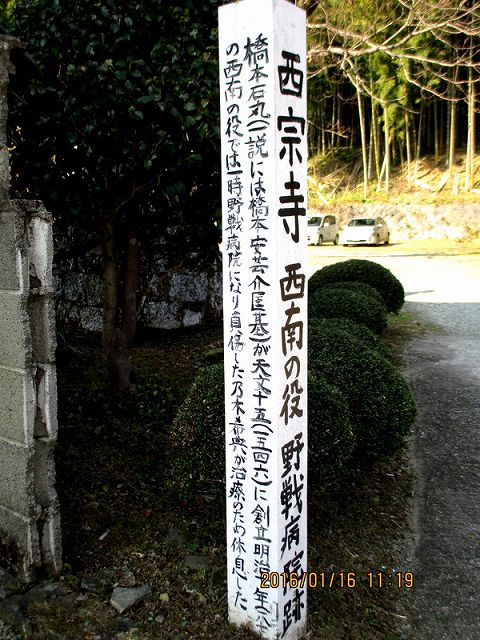 西宗寺 西南の役 野戦病院跡
橋本石丸(一説には橋本安芸介匡基)が天文十五(一五四六)に創立明治十年(一八
の西南の役では一時野戦病院になり負傷した乃木希典が治療のため休息した
2016/01/16 11:19